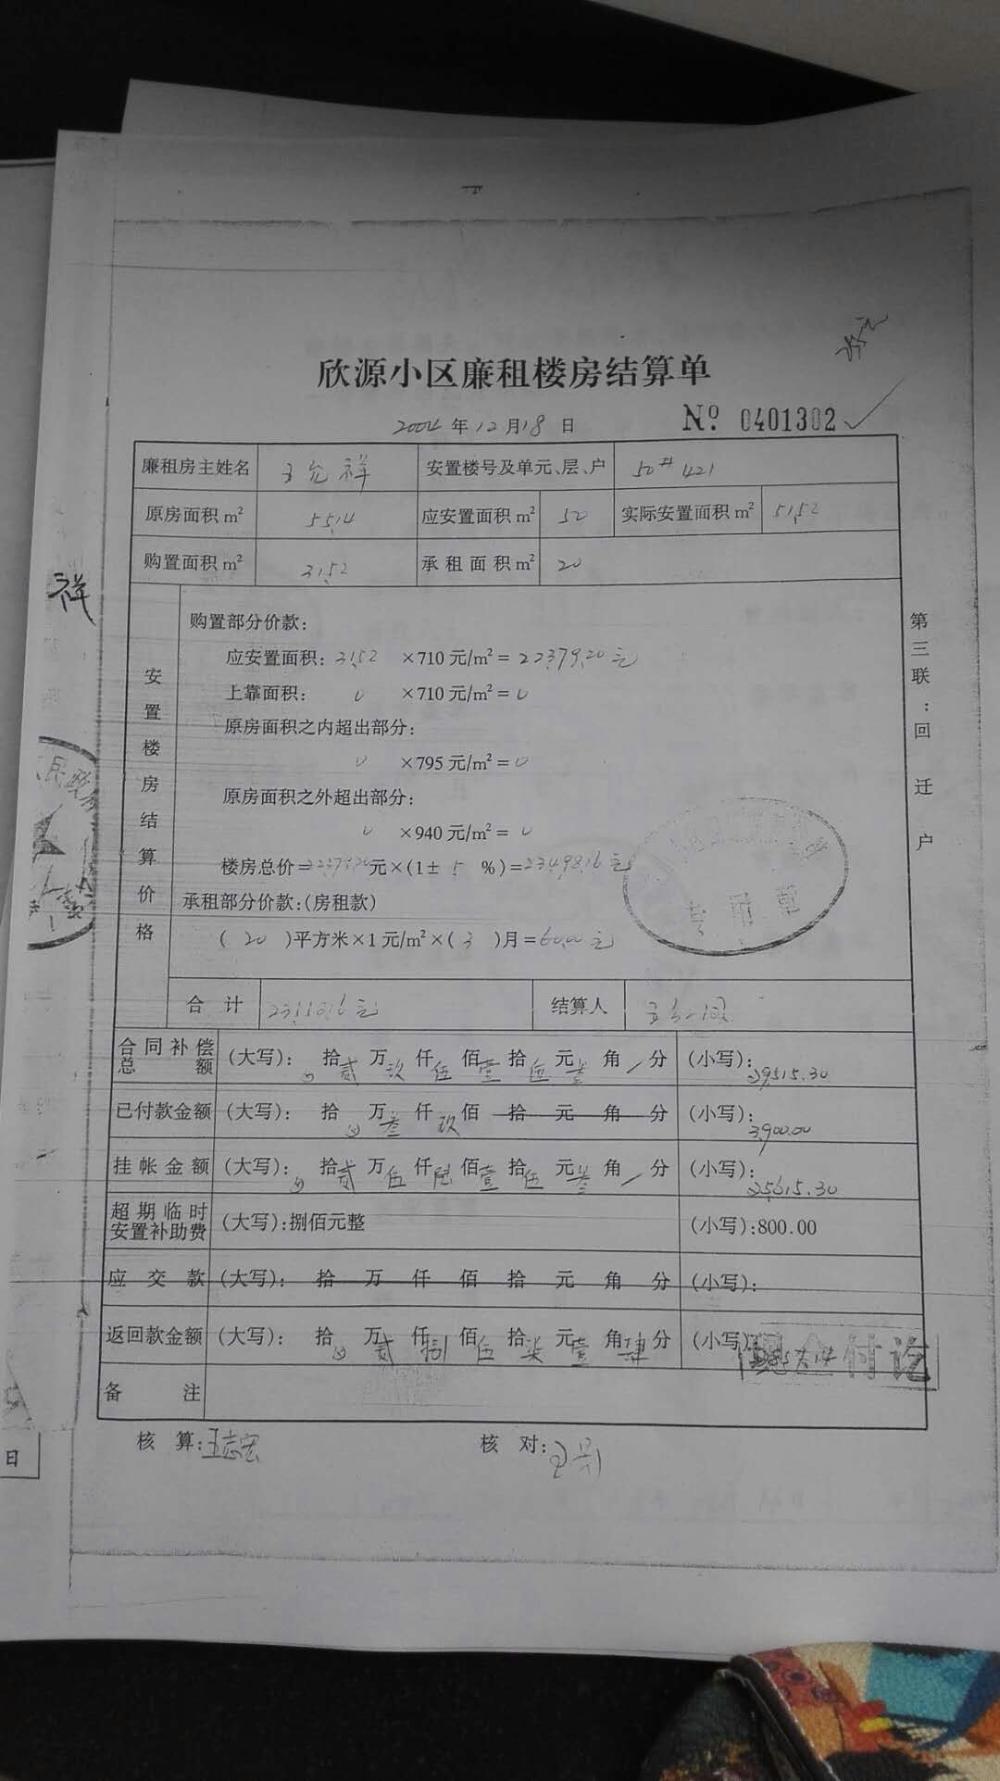 欣源小区廉租楼房结算单
2004年12月18日 № 0401302
廉租房主姓名 王允祥 安置楼号及单元、层、户 50# 421
原房面积m² 55.14 应安置面积m² 50 实际安置面积m² 51.52
购置面积m² 31.52 承租面积m² 20
安置楼房结算价格
购置部分价款:
应安置面积: 31.52 ×710元/m²= 22379.20元
上靠面积: 0 ×710元/m²= 0
原房面积之内超出部分:
0 ×795元/m²= 0
原房面积之外超出部分:
0 ×940元/m²= 0
楼房总价=22379.20元×(1± 5 %)=23498.16元
承租部分价款:(房租款)
( 20 )平方米×1元/m²×( 3 )月=60.00元
专用章
合计 结算人
合同补偿总额 (大写): 拾贰万玖仟伍佰壹拾伍元叁角/分 (小写): 29515.30
已付款金额 (大写): 拾万叁仟玖佰拾元角分 (小写): 3900.00
挂帐金额 (大写): 拾贰万伍仟陆佰壹拾伍元叁角/分 (小写): 25615.30
超期临时安置补助费 (大写):捌佰元整 (小写):800.00
应交款 (大写): 拾万仟佰拾元角分 (小写):
返回款金额 (大写): 拾万贰仟捌佰伍拾柒元壹角肆分 (小写): 2857.14
现金付讫
备注
核算:王志宏 核对:
第三联:回迁户
祥
民政
日